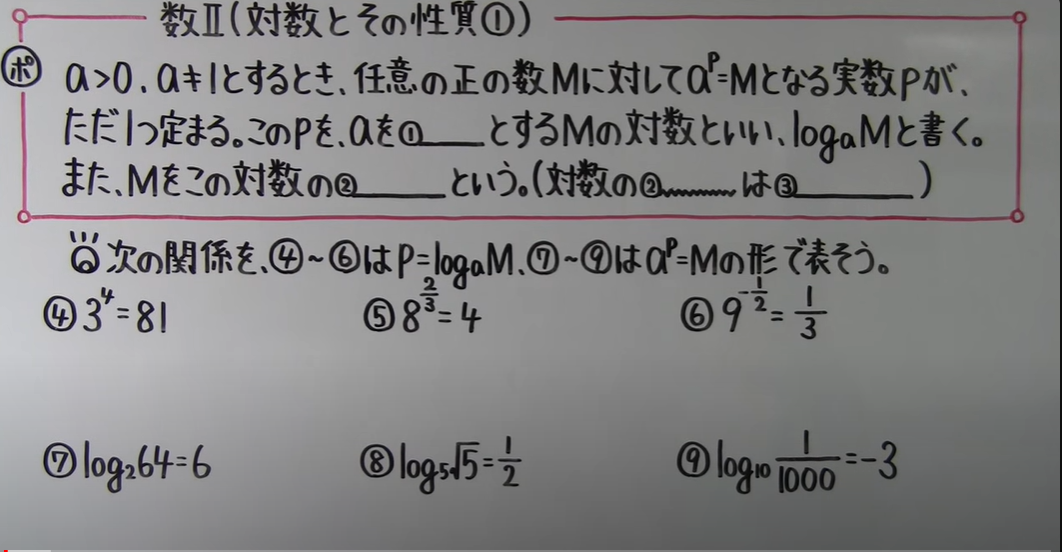 数Ⅱ(対数とその性質①)
ポ a>0、a≠1とするとき、任意の正の数Mに対してa^p=Mとなる実数pが、
ただ1つ定まる。このpを、aを①___とするMの対数といい、log_a Mと書く。
また、Mをこの対数の②_____という。(対数の②_____は③______)
次の関係を、④~⑥はp=log_a M、⑦~⑨はa^p=Mの形で表そう。
④ 3^4=81 ⑤ 8^(2/3)=4 ⑥ 9^(-1/2)=1/3
⑦ log_2 64=6 ⑧ log_5 √5=1/2 ⑨ log_10 1/1000=-3